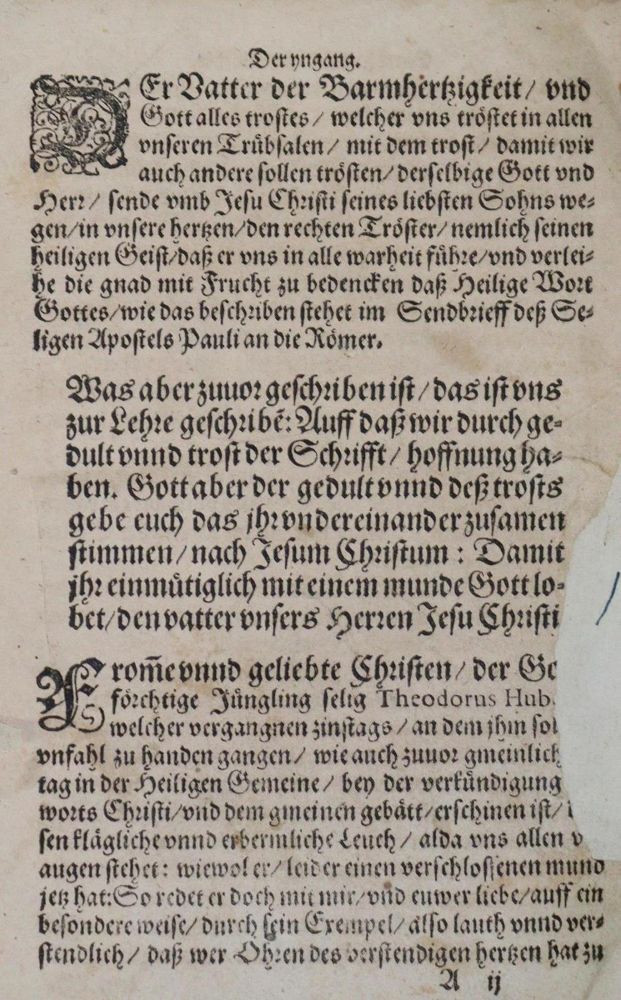 Der yngang.
DEr Vatter der Barmhertzigkeit/ vnd
Gott alles trostes/ welcher vns tröstet in allen
vnseren Trübsalen/ mit dem trost/ damit wir
auch andere sollen trösten/ derselbige Gott vnd
Herr/ sende vmb Jesu Christi seines liebsten Sohns we-
gen/in vnsere hertzen/den rechten Tröster/nemlich seinen
heiligen Geist/daß er vns in alle warheit führe/vnd verlei-
he die gnad mit Frucht zu bedencken daß Heilige Wort
Gottes/wie das beschriben stehet im Sendbrieff deß Se-
ligen Apostels Pauli an die Römer.
Was aber zuuor geschriben ist/das ist vns
zur Lehre geschribē: Auff daß wir durch ge-
dult vnnd trost der Schrifft/ hoffnung ha-
ben. Gott aber der gedult vnnd deß trosts
gebe euch das jhr vndereinander zusamen
stimmen/nach Jesum Christum: Damit
jhr einmütiglich mit einem munde Gott lo-
bet/den vatter vnsers Herren Jesu Christi
FRom̄e vnnd geliebte Christen/ der Go
förchtige Jüngling selig Theodorus Hub
welcher vergangnen zinstags/ an dem jhm sol
vnfahl zu handen gangen/ wie auch zuuor gmeinlich
tag in der Heiligen Gemeine/ bey der verkündigung
worts Christi/vnd dem gmeinen gebätt/erschinen ist/
sen klägliche vnnd erbermliche Leuch/ alda vns allen v
augen stehet: wiewol er/ leider einen verschlossenen mund
jetz hat:So redet er doch mit mir/vnd euwer liebe/auff ein
besondere weise/ durch sein Exempel/ also lauth vnnd ver-
stendlich/ daß wer Ohren des verstendigen hertzen hat zu
A ij